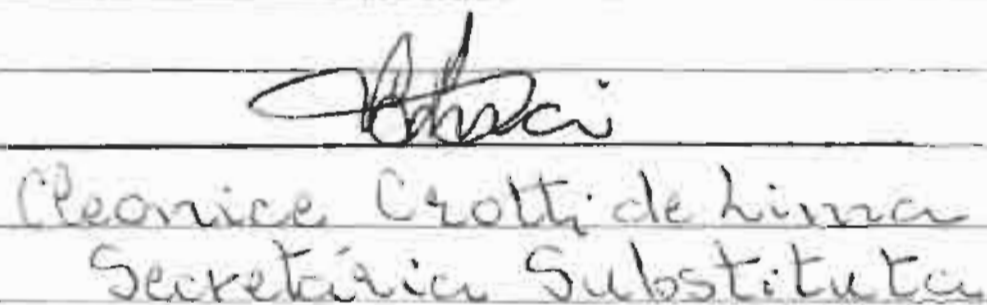 Cleonice Crotti de Lima
Secretária Substituta